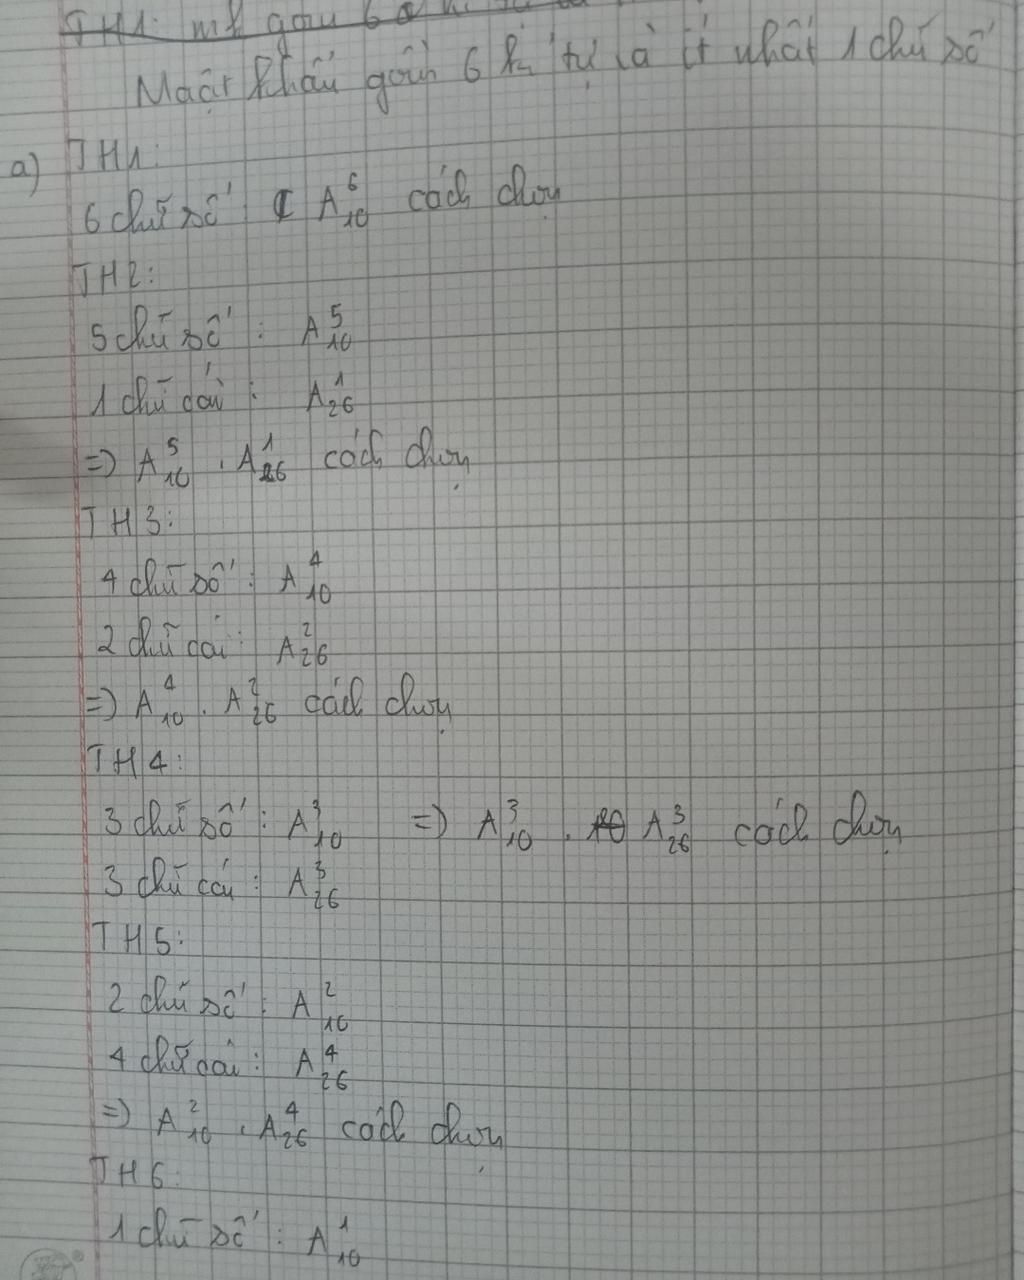 TH1: mk gồm 6
Mật khẩu gồm 6 kí tự là ít nhất 1 chữ số
a) TH1:
6 chữ số A⁶₁₀ cách chọn
TH2:
5 chữ số : A⁵₁₀
1 chữ cái : A¹₂₆
=> A⁵₁₀ . A¹₂₆ cách chọn
TH3:
4 chữ số : A⁴₁₀
2 chữ cái : A²₂₆
=> A⁴₁₀ . A²₂₆ cách chọn
TH4:
3 chữ số : A³₁₀ => A³₁₀ . A³₂₆ cách chọn
3 chữ cái : A³₂₆
TH5:
2 chữ số : A²₁₀
4 chữ cái : A⁴₂₆
=> A²₁₀ . A⁴₂₆ cách chọn
TH6:
1 chữ số : A¹₁₀